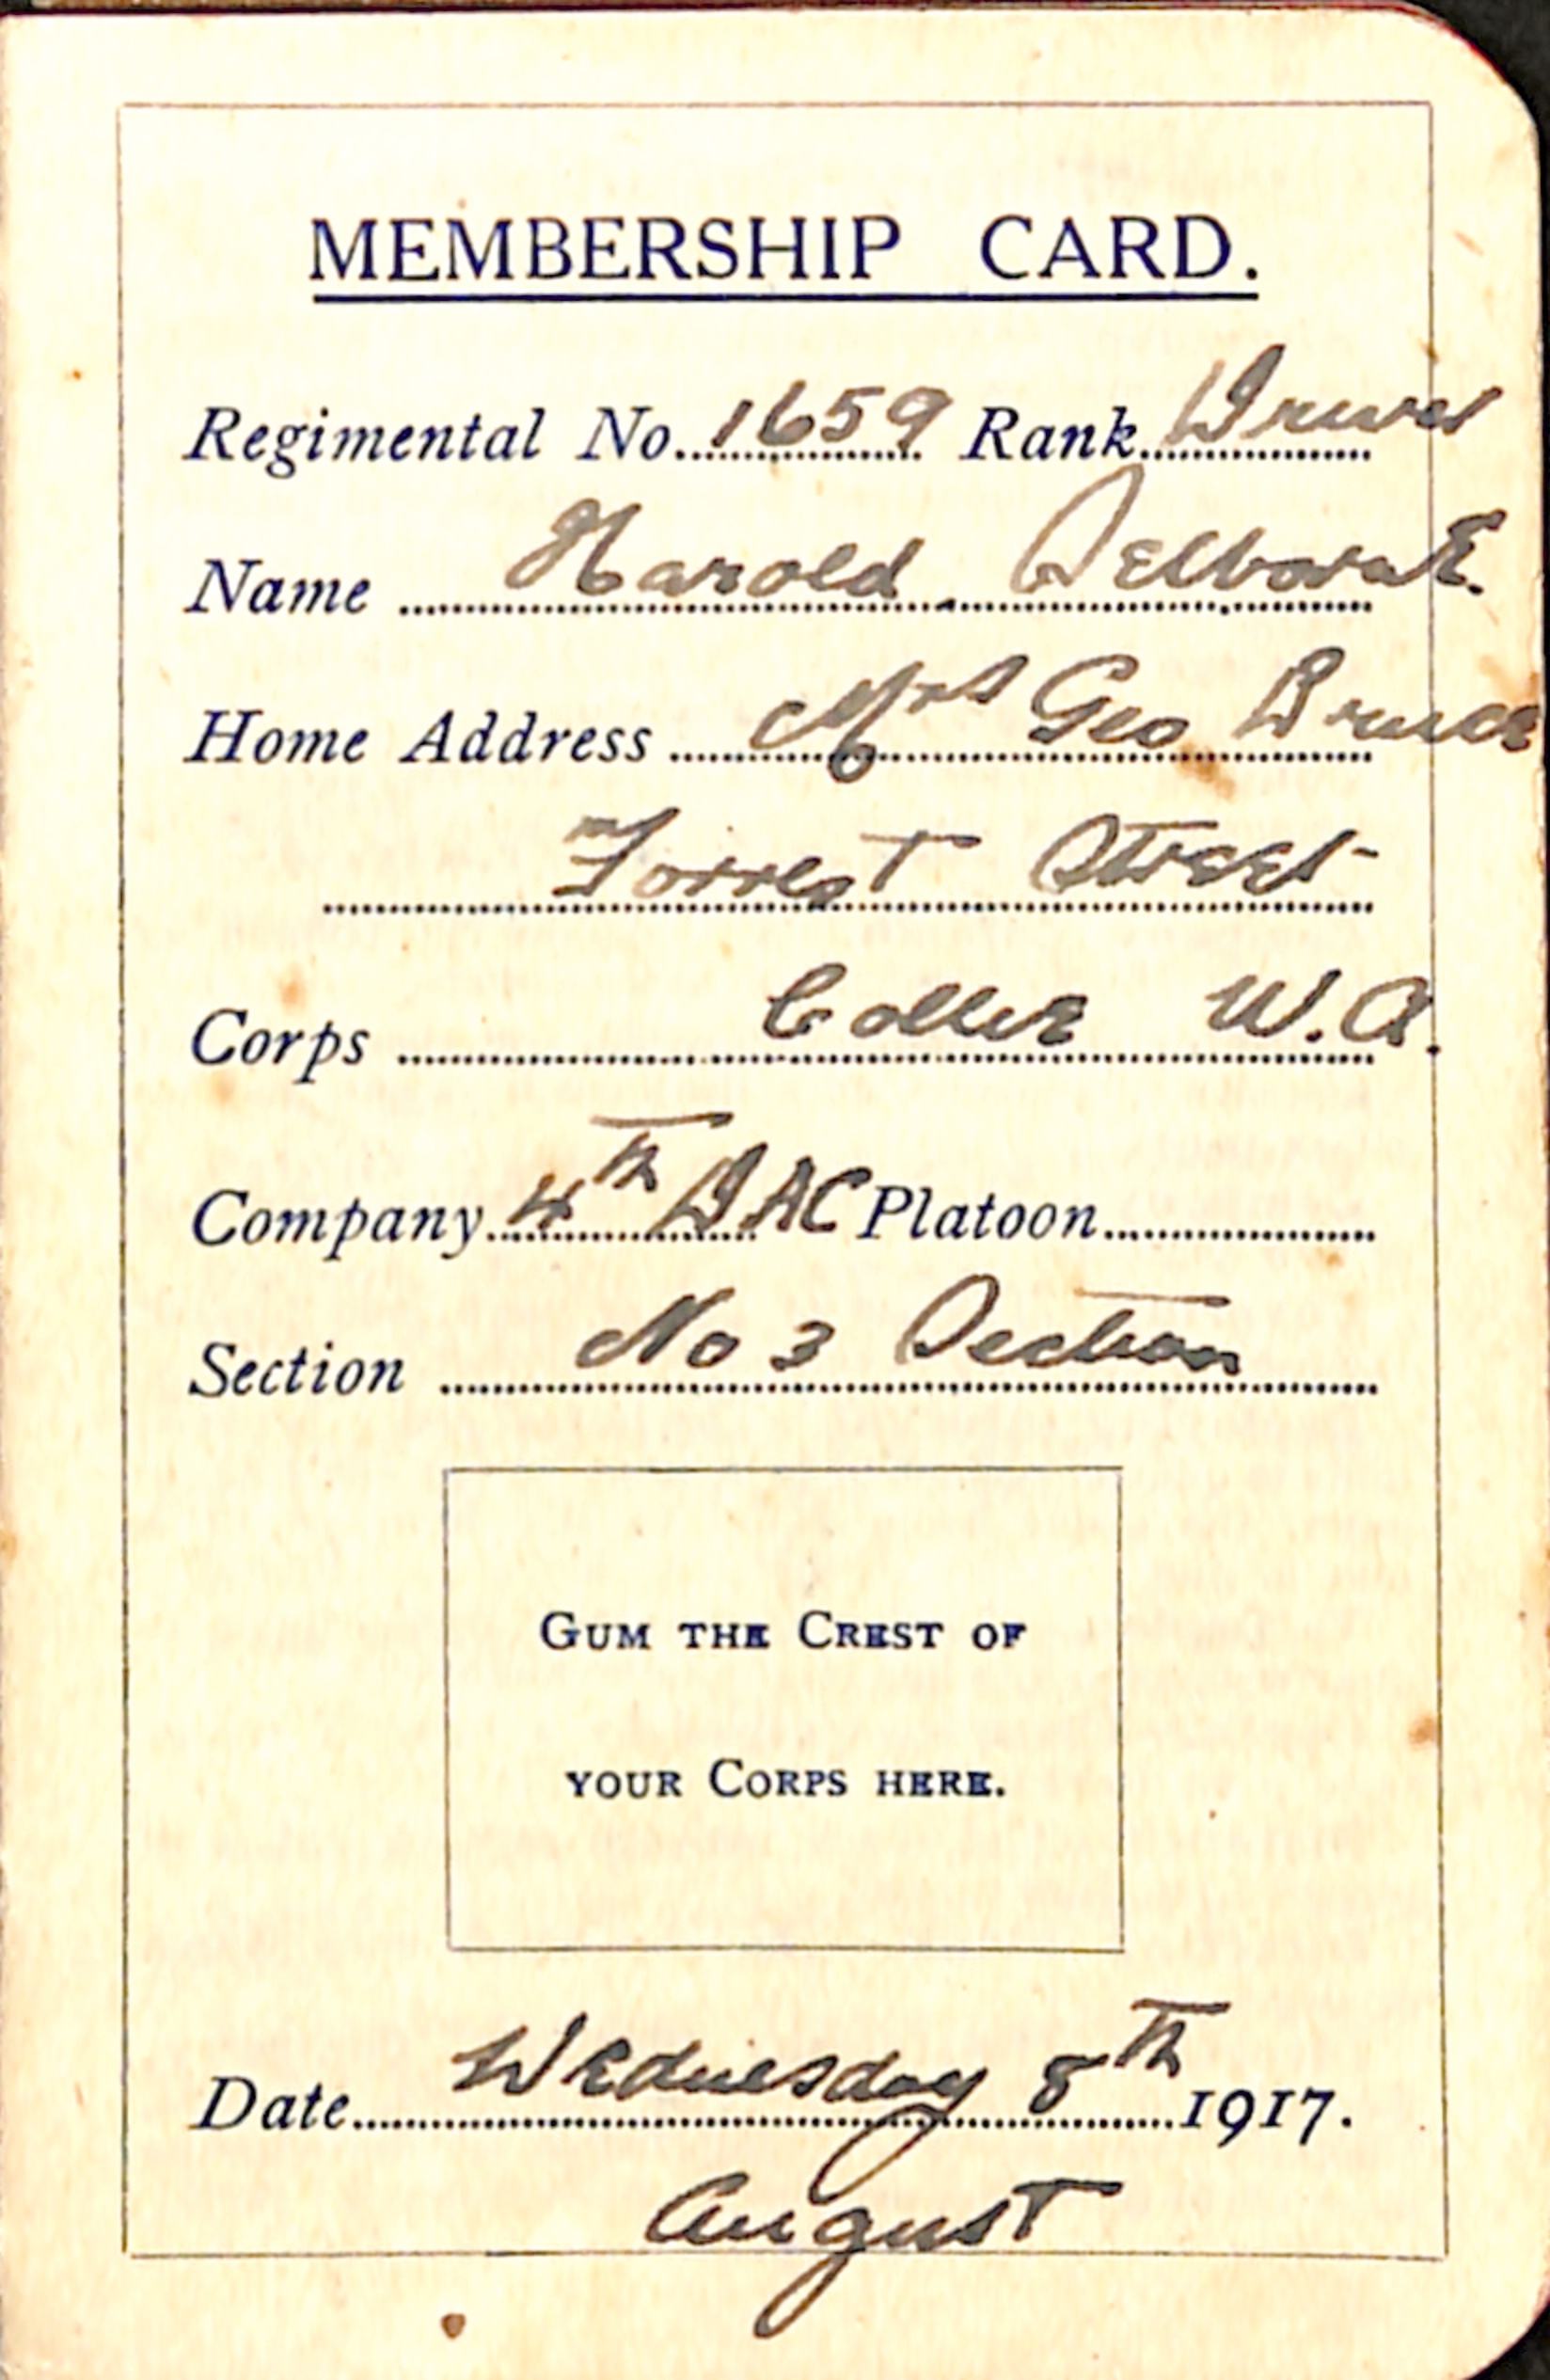 MEMBERSHIP CARD.
Regimental No. 1659 Rank Driver
Name Harold
Home Address Mrs Geo Bruce
Forrest Street
Corps Collie W.A.
Company 4th DAC Platoon
Section No 3 Section
GUM THE CREST OF
YOUR CORPS HERE.
Date Wednesday 8th 1917.
August